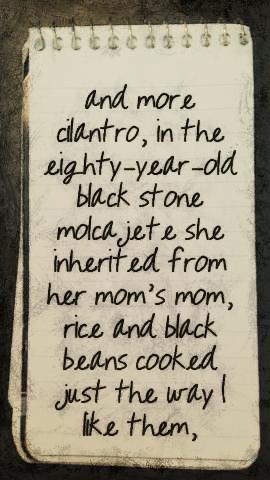 and more
cilantro, in the
eighty-year-old
black stone
molcajete she
inherited from
her mom's mom,
rice and black
beans cooked
just the way I
like them,